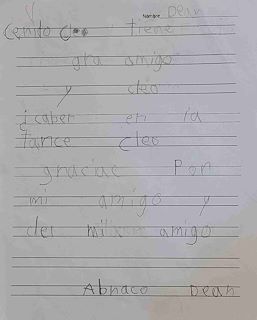 Nombre Dean
cenito c tiene
gra amigo
y cleo
i caber en la
tarice cleo
graciac Pon
mi amigo y
del mi amigo
Abnaco Dean